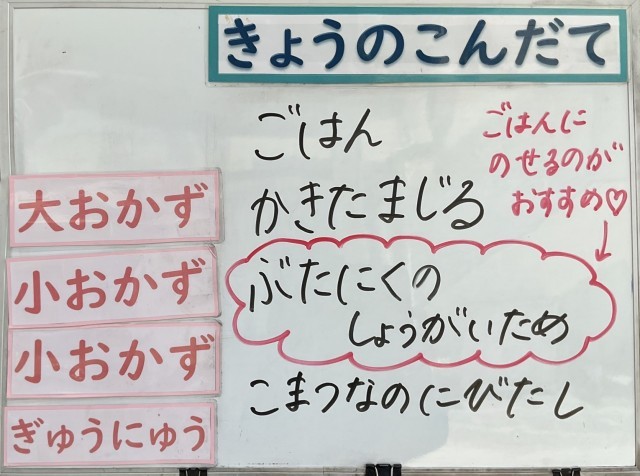 きょうのこんだて
ごはん
ごはんに
のせるのが
おすすめ♡
大おかず
かきたまじる
小おかず
ぶたにくの
しょうがいため
小おかず
こまつなのにびたし
ぎゅうにゅう